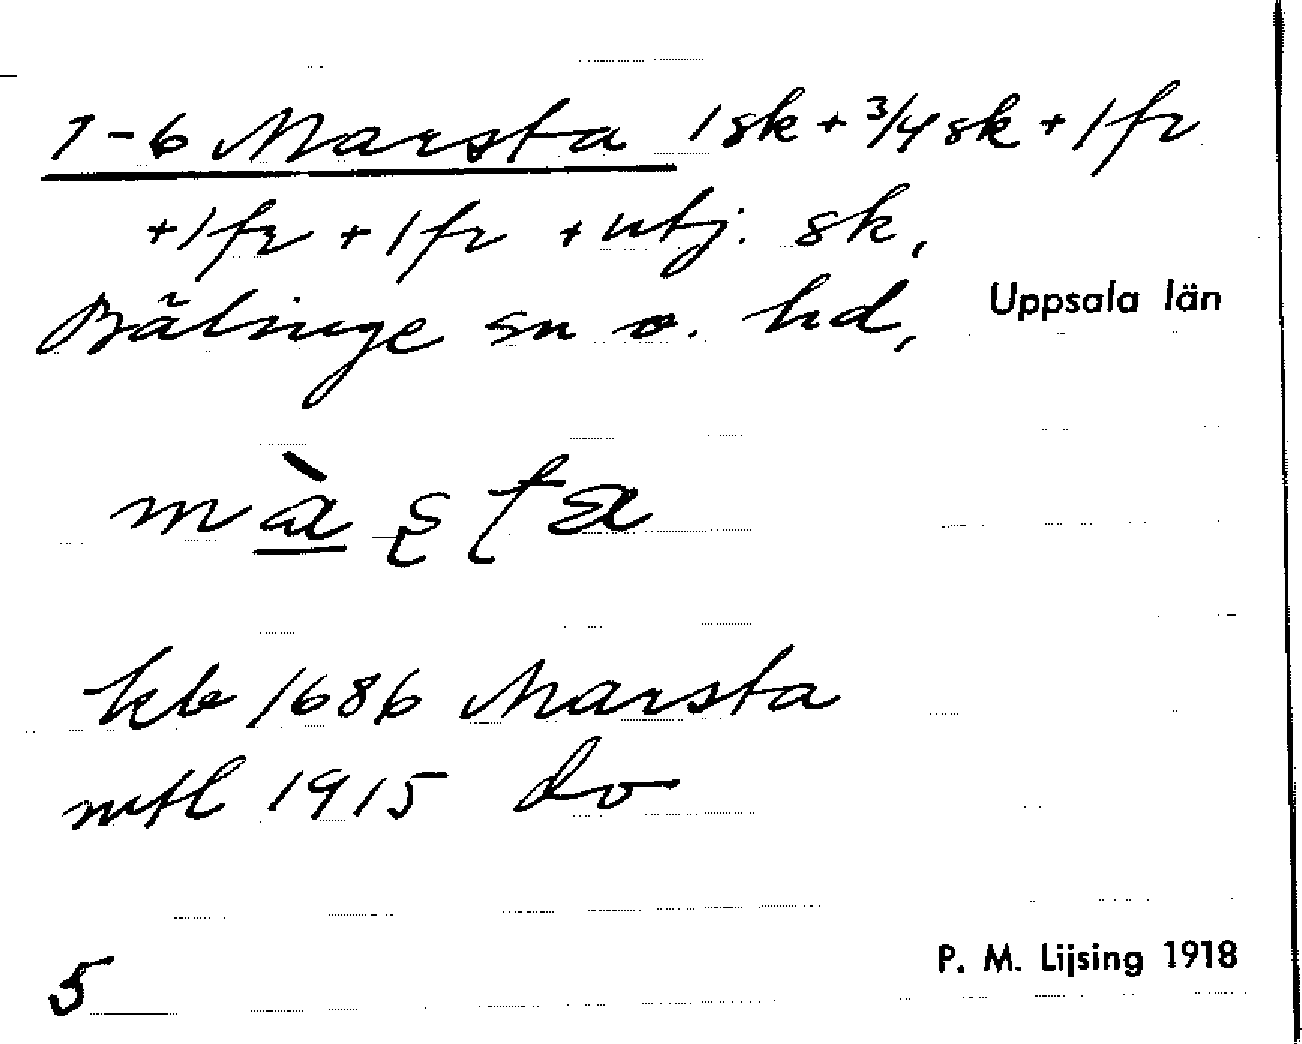 1-6 Marsta 1 sk + 3/4 sk + 1 fr
+ 1 fr + 1 fr + utj. sk,
Bälinge sn o. hd, Uppsala län
kb 1686 Marsta
mtl 1915 do
5 P. M. Lijsing 1918